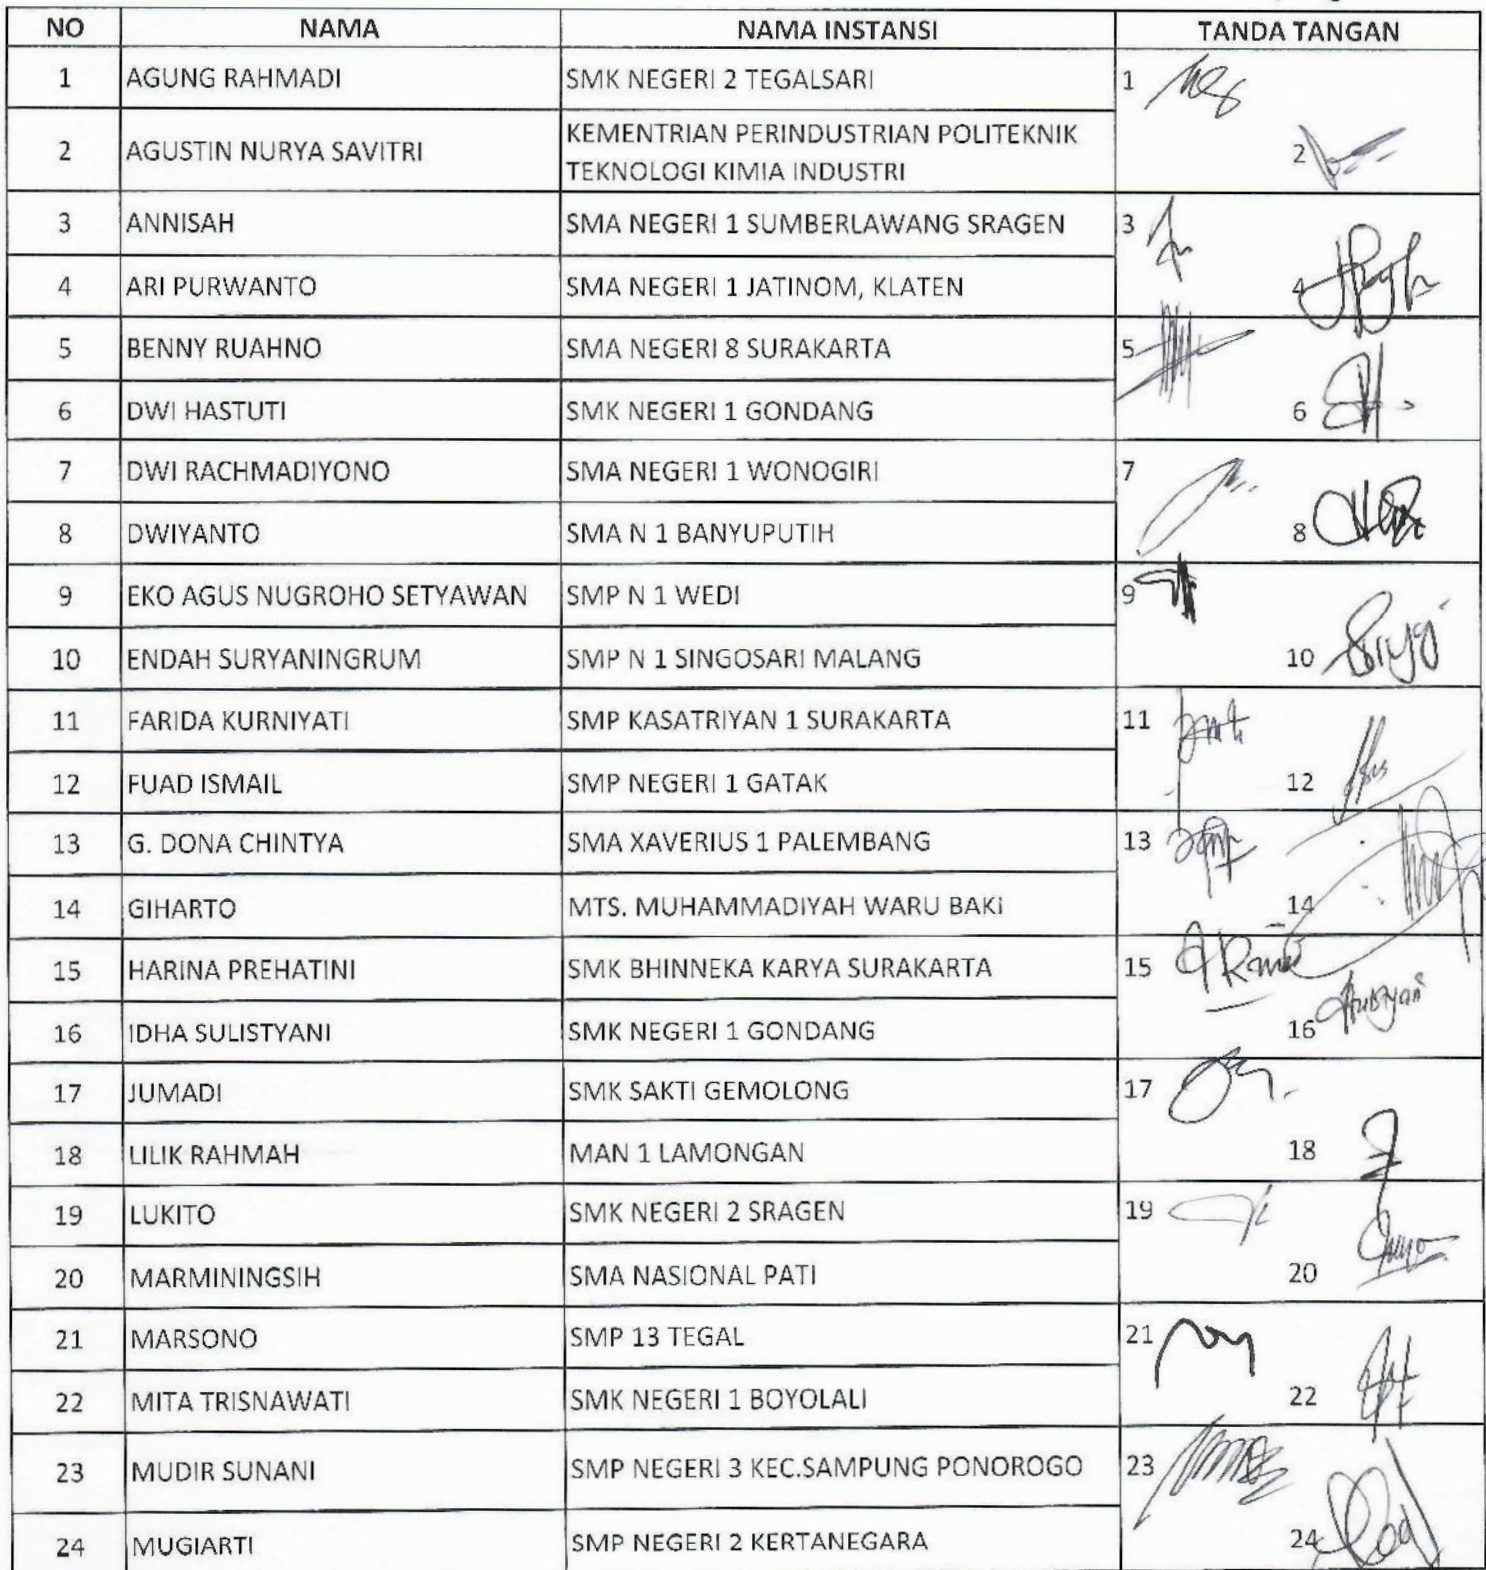 NO NAMA NAMA INSTANSI TANDA TANGAN
1 AGUNG RAHMADI SMK NEGERI 2 TEGALSARI 1
2 AGUSTIN NURYA SAVITRI KEMENTRIAN PERINDUSTRIAN POLITEKNIK
TEKNOLOGI KIMIA INDUSTRI 2
3 ANNISAH SMA NEGERI 1 SUMBERLAWANG SRAGEN 3
4 ARI PURWANTO SMA NEGERI 1 JATINOM, KLATEN 4
5 BENNY RUAHNO SMA NEGERI 8 SURAKARTA 5
6 DWI HASTUTI SMK NEGERI 1 GONDANG 6
7 DWI RACHMADIYONO SMA NEGERI 1 WONOGIRI 7
8 DWIYANTO SMA N 1 BANYUPUTIH 8
9 EKO AGUS NUGROHO SETYAWAN SMP N 1 WEDI 9
10 ENDAH SURYANINGRUM SMP N 1 SINGOSARI MALANG 10
11 FARIDA KURNIYATI SMP KASATRIYAN 1 SURAKARTA 11
12 FUAD ISMAIL SMP NEGERI 1 GATAK 12
13 G. DONA CHINTYA SMA XAVERIUS 1 PALEMBANG 13
14 GIHARTO MTS. MUHAMMADIYAH WARU BAKI 14
15 HARINA PREHATINI SMK BHINNEKA KARYA SURAKARTA 15
16 IDHA SULISTYANI SMK NEGERI 1 GONDANG 16
17 JUMADI SMK SAKTI GEMOLONG 17
18 LILIK RAHMAH MAN 1 LAMONGAN 18
19 LUKITO SMK NEGERI 2 SRAGEN 19
20 MARMININGSIH SMA NASIONAL PATI 20
21 MARSONO SMP 13 TEGAL 21
22 MITA TRISNAWATI SMK NEGERI 1 BOYOLALI 22
23 MUDIR SUNANI SMP NEGERI 3 KEC.SAMPUNG PONOROGO 23
24 MUGIARTI SMP NEGERI 2 KERTANEGARA 24